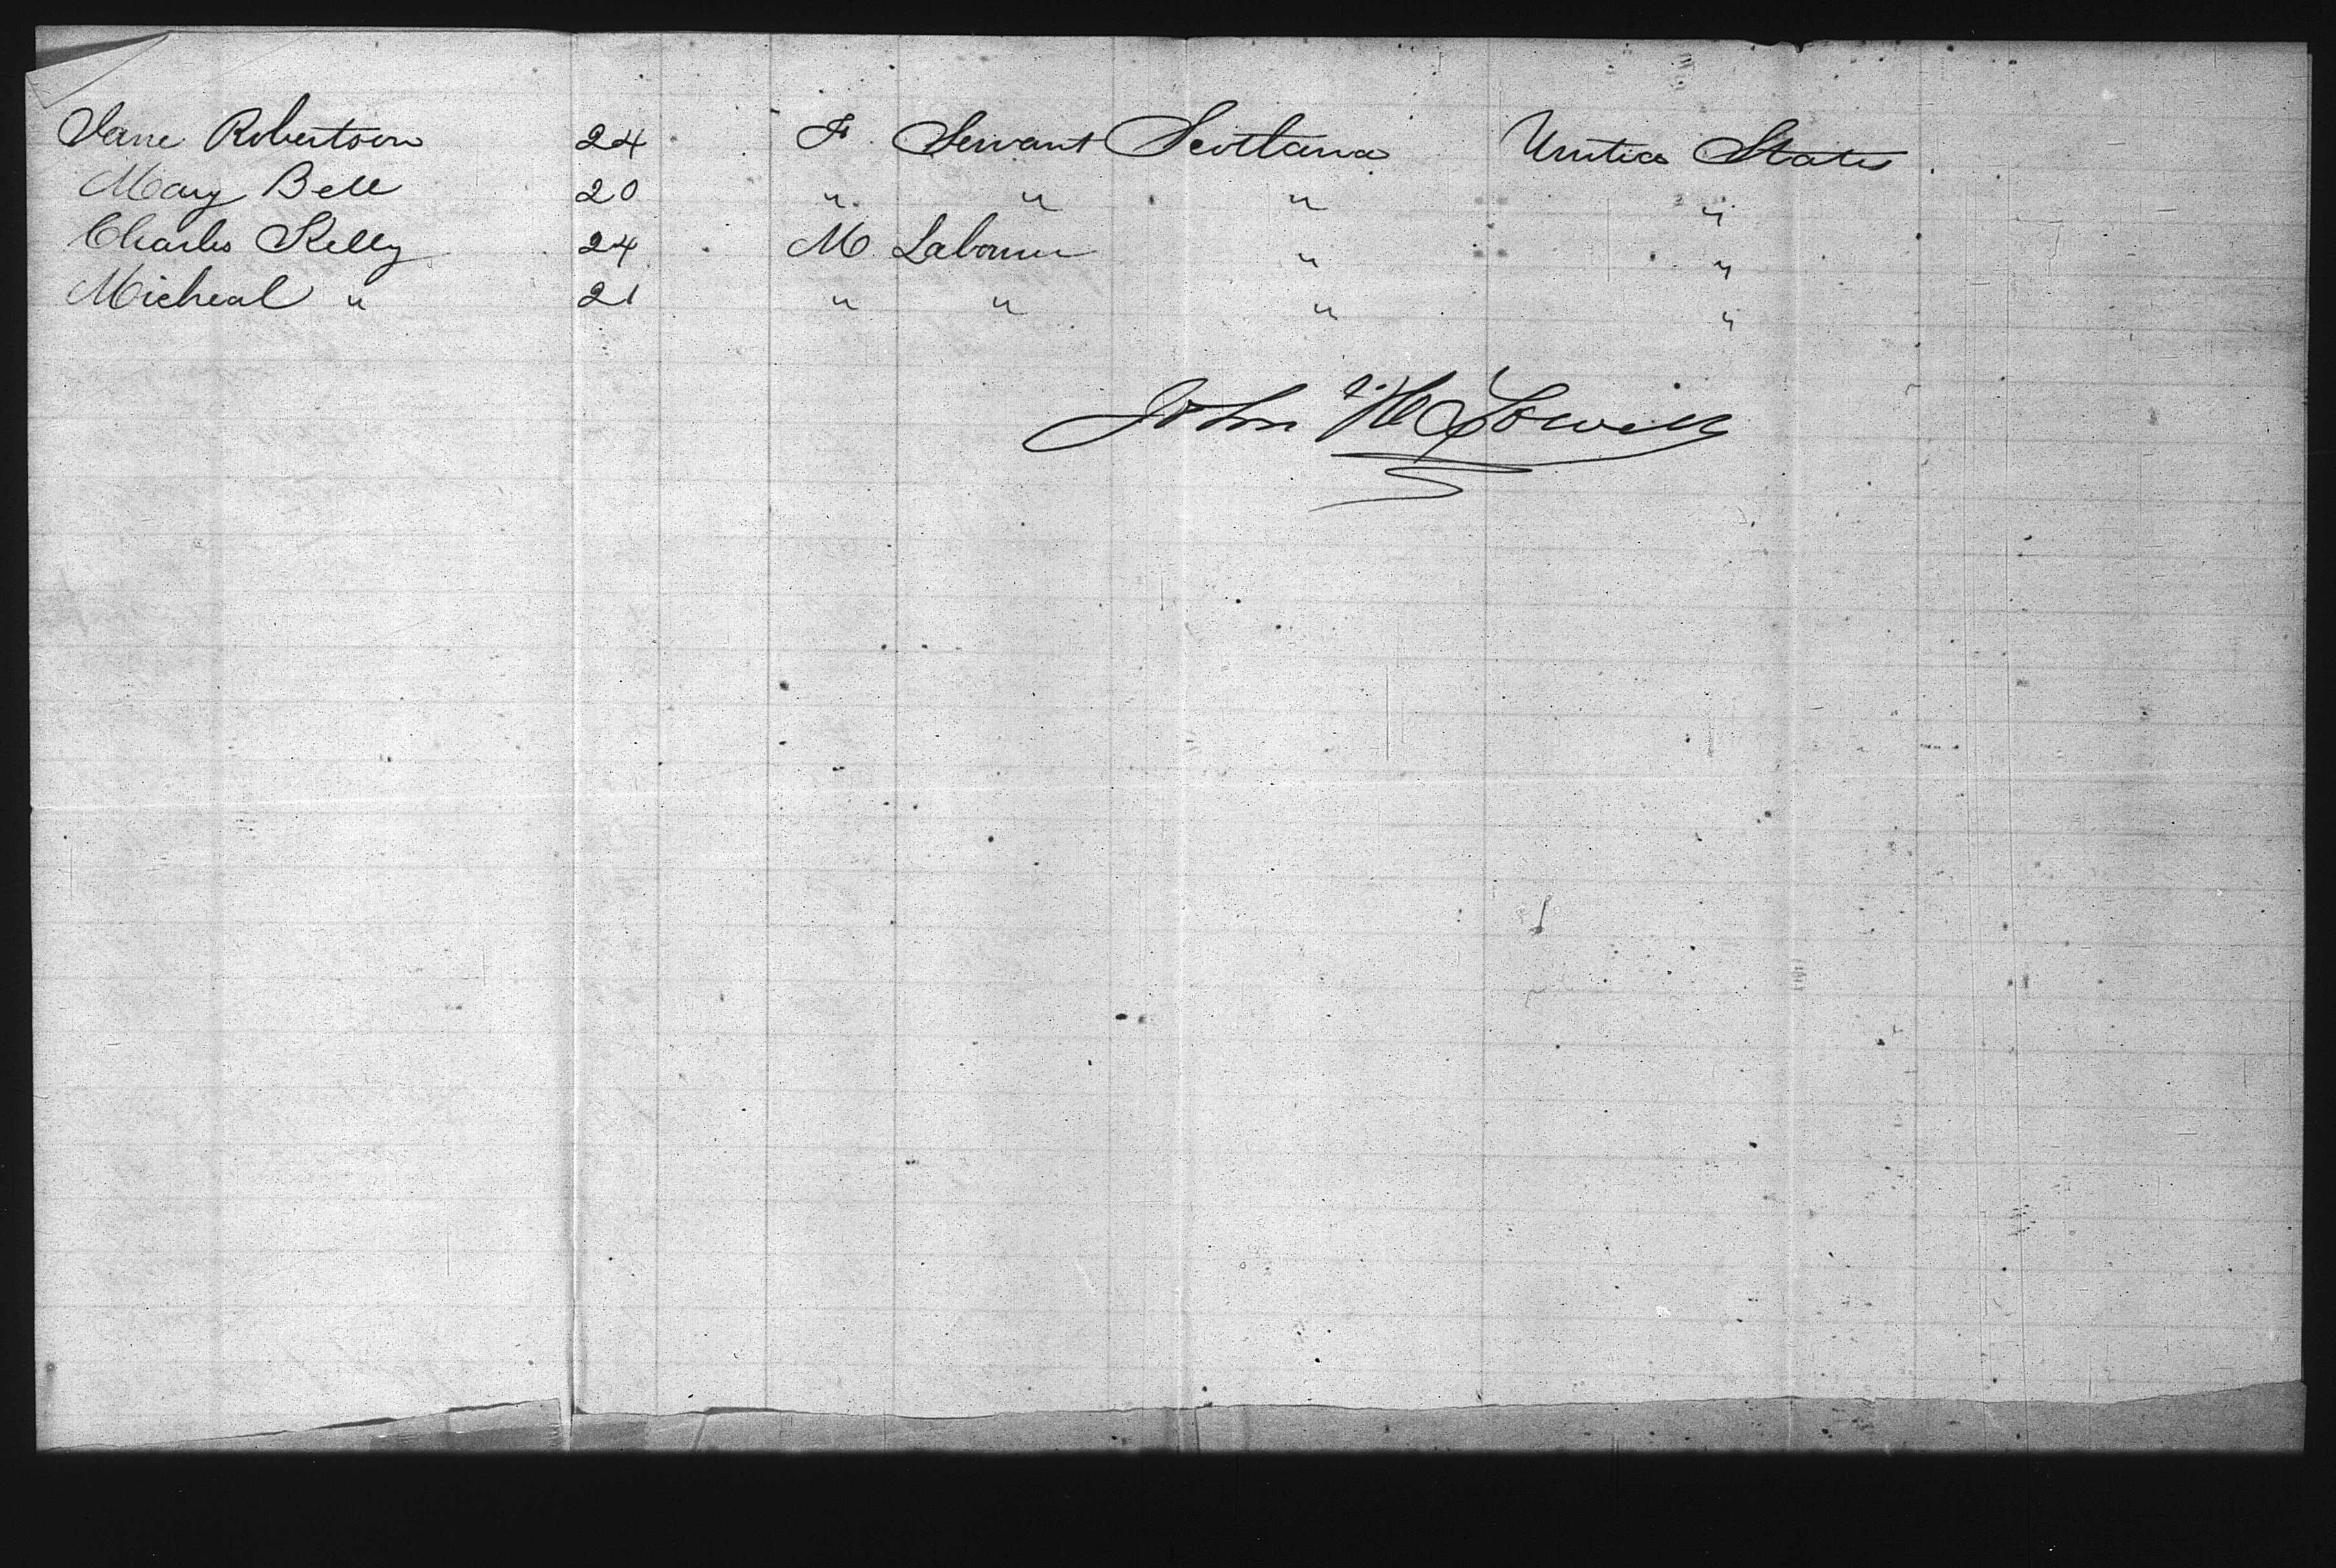 Jane Robertson 24 F. Servant Scotland United States
Mary Bell 20 " " " "
Charles Kelly 24 M Labourer " "
Micheal " 21 " " " "
John H Lowell